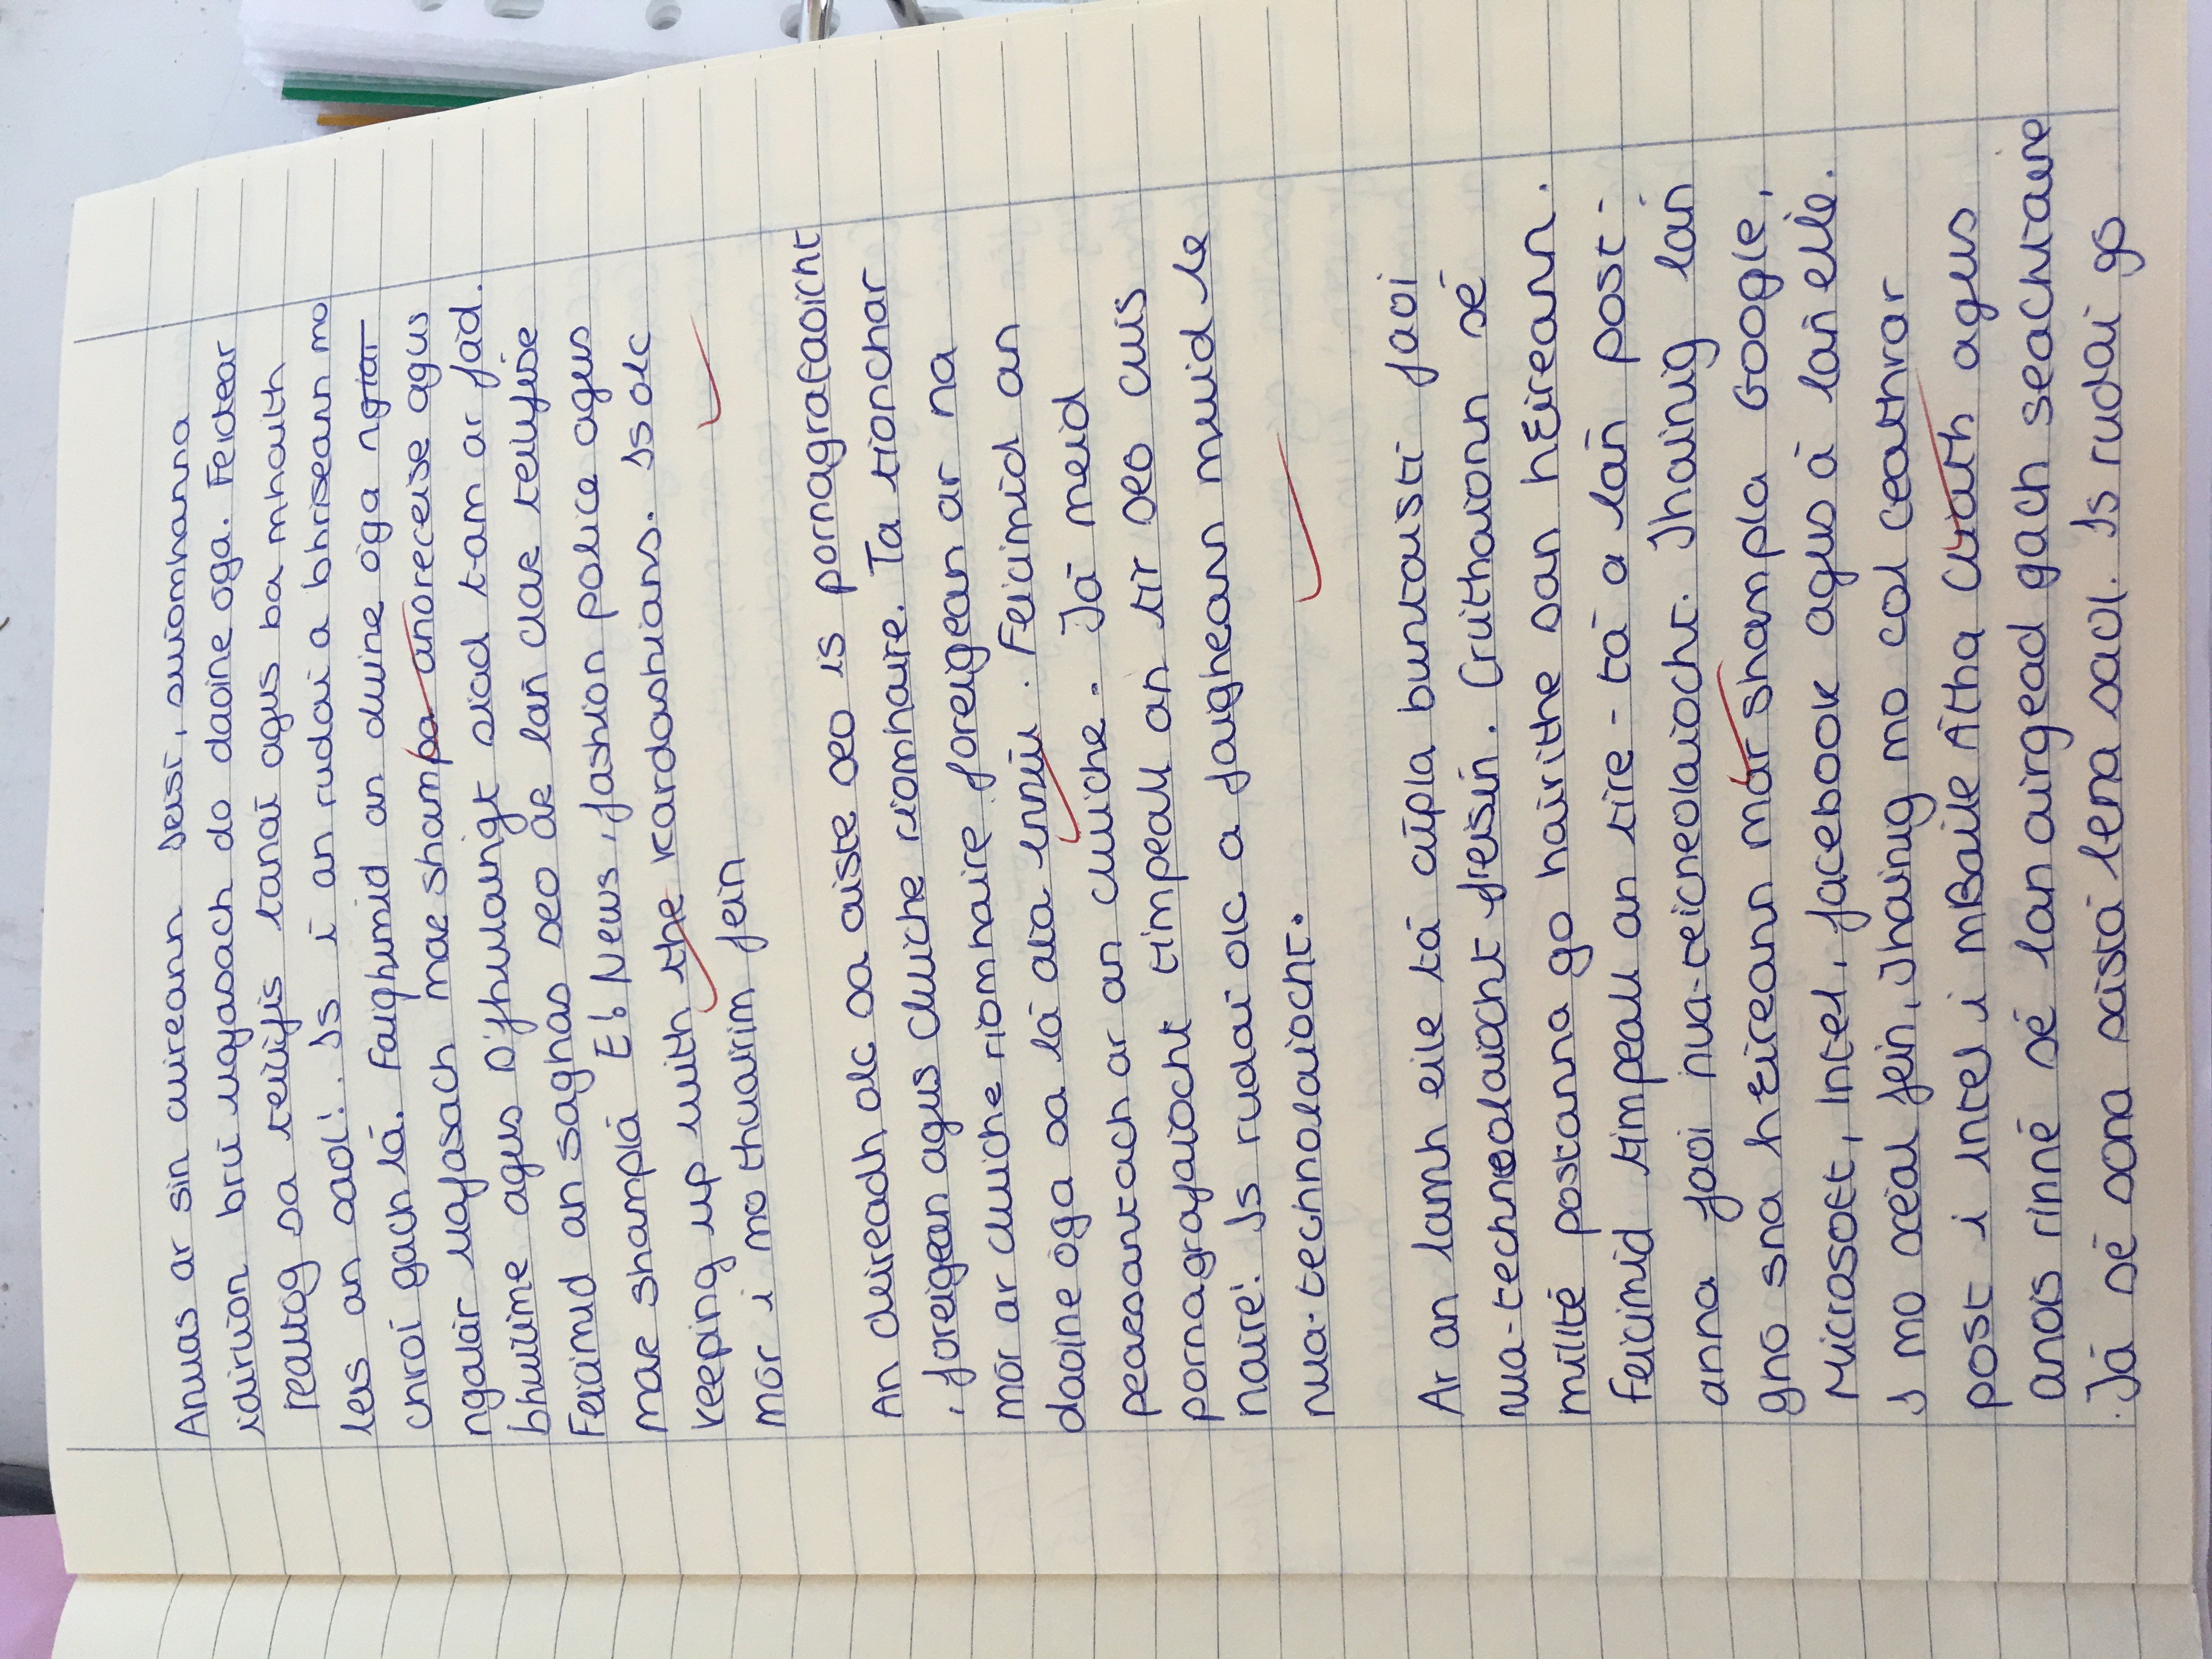 Anuas ar sin cuireann Seisī, suíomhanna
idirlíon brú uafasach do daoine óga. Feictear
realtóg sa teilifís tanaí agus ba mhaith
leis an saol!. Is í an rudaí a bhriseann mo
chroí gach lá. Faighimid an duine óga ngtar
ngalair uafasach mar shampa anoreceise agus
bhuilíme agus D'fhulaingt siad t-am ar fad.
Feicimid an saghas seo ar lán clár teilifíse
mar shamplá E! News, fashion police agus
keeping up with the Kardashians. Is olc
mór i mo thuairim féin
An deireadh olc sa aiste seo is pornagrafaoicht
, foreigean agus cluiche ríomhaire. Ta tionchar
mór ar cluiche ríomhaire foreigean ar na
daoine óga sa lá atá inniú. Feicimid an
pearsantach ar an cluiche. Tá meid
pornagrafaíocht timpeall an tír seo cuis
naire! Is rudaí olc a faigheann muid le
nua-technolaíocht.
Ar an lamh eile tá cúpla buntaistí faoi
nua-techneolaíocht freisin. Cruthaíonn sé
míllté postanna go hairithe san hEireann.
Feicimid timpeall an tíre - tá a lán post-
anna faoi nua-teicneolaíocht. Thainig lán
gnó sna hEireann mar shampla Google,
Microsoft, Intel, facebook agus á lán eile.
I mo scéal féin, Thainig mo col ceathrar
post i Intel i mBaile Átha Cliath agus
anois rinné sé lan airgead gach seachtaine
. Tá sé sona sástá lena saol. Is rudaí go